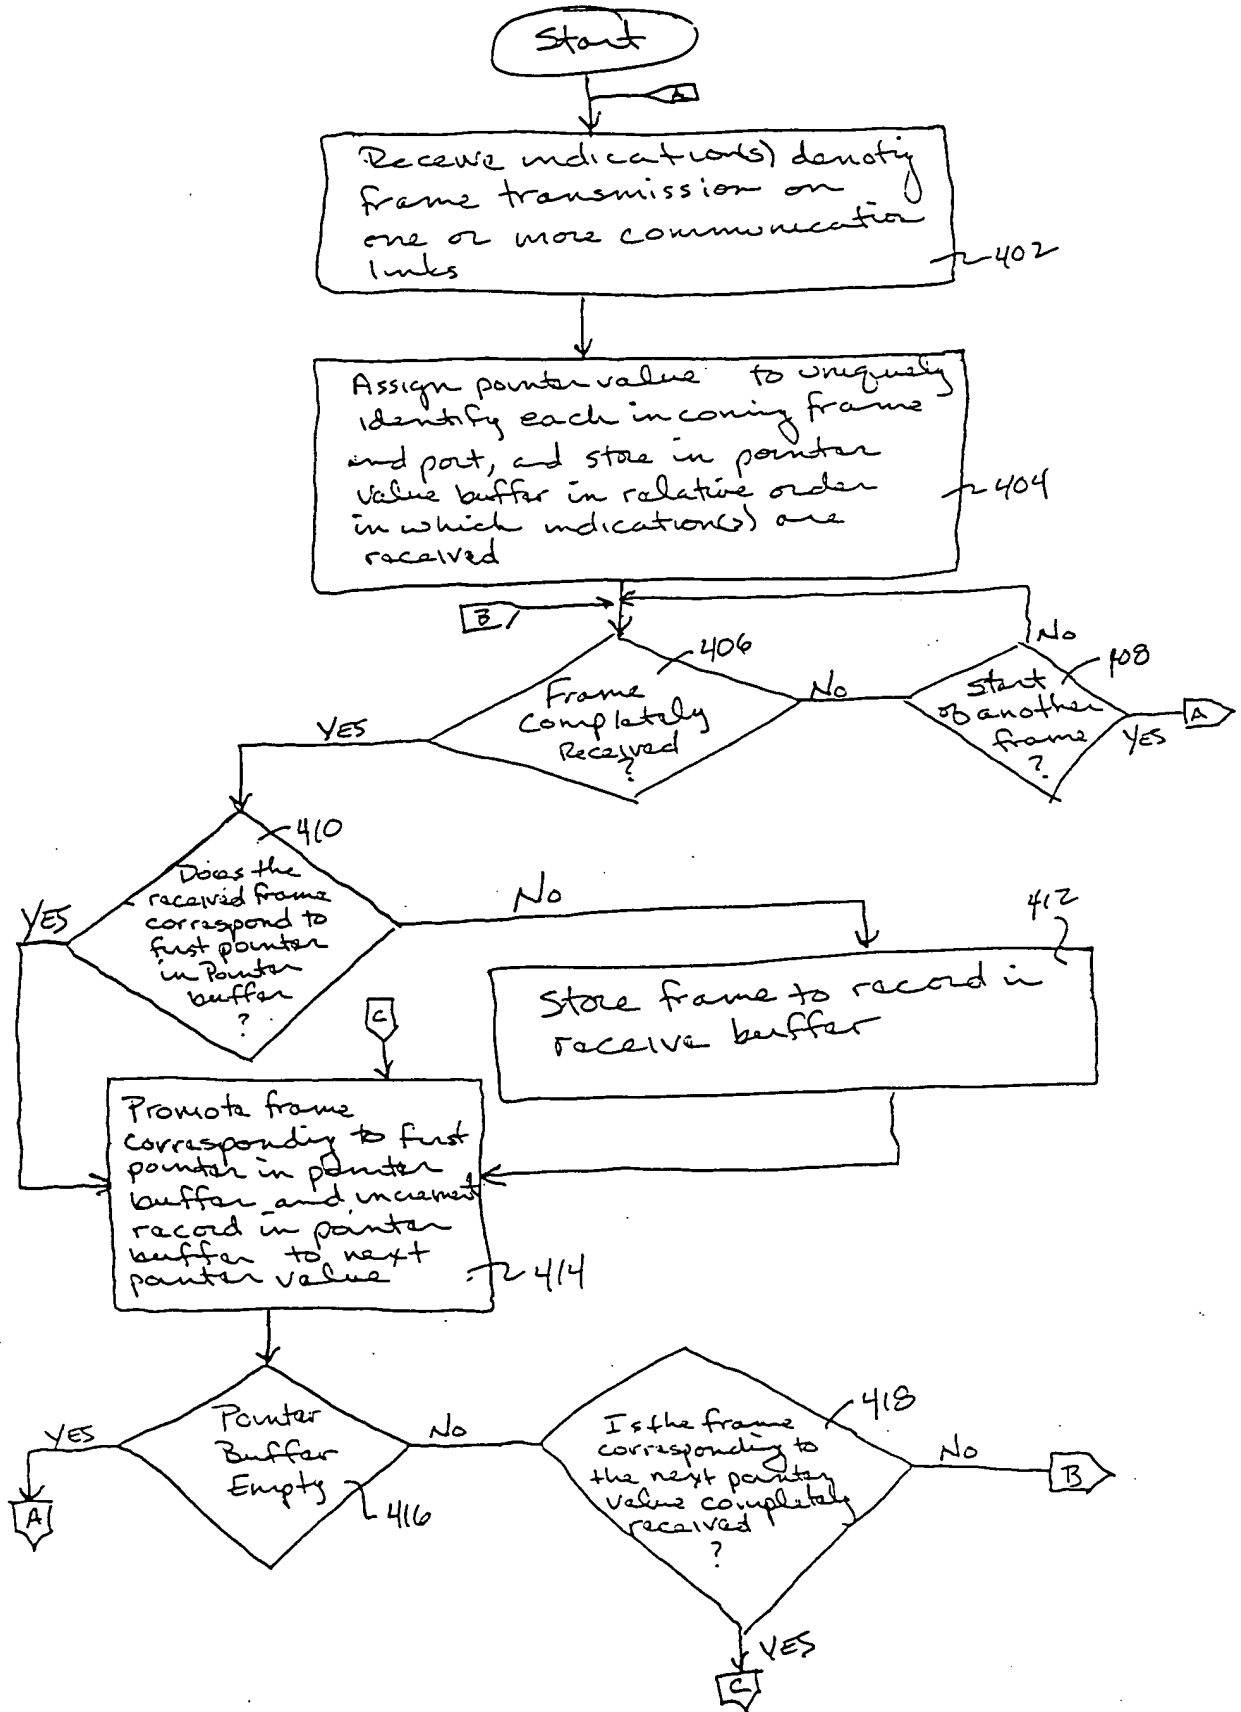 Start
A
Receive indication(s) denotig
frame transmission on
one or more communication
links
402
Assign pointer value to uniquely
identify each incoming frame
and port, and store in pointer
value buffer in relative order
in which indication(s) are
received
404
B
406
Frame
Completely
Received
?
YES
No
No
408
Start
of another
frame
?
YES
A
410
Does the
received frame
correspond to
first pointer
in Pointer
buffer
?
YES
No
412
Store frame to record in
receive buffer
C
Promote frame
corresponding to first
pointer in pointer
buffer and increment
record in pointer
buffer to next
pointer value
414
Pointer
Buffer
Empty
416
YES
A
No
418
Is the frame
corresponding to
the next pointer
value completely
received
?
No
B
YES
C